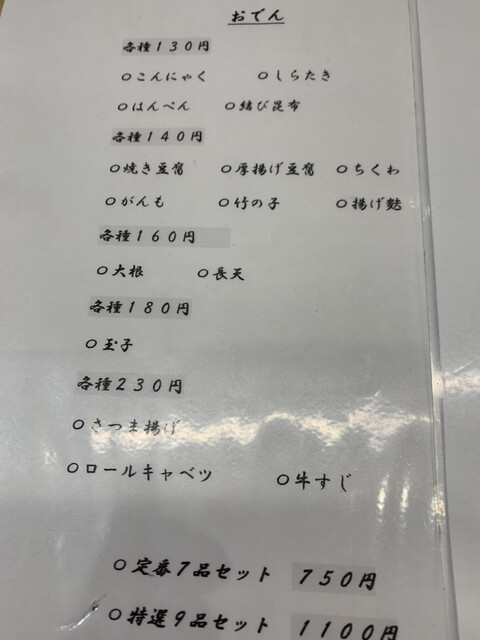 おでん
各種130円
○こんにゃく ○しらたき
○はんぺん ○結び昆布
各種140円
○焼き豆腐 ○厚揚げ豆腐 ○ちくわ
○がんも ○竹の子 ○揚げ麩
各種160円
○大根 ○長天
各種180円
○玉子
各種230円
○さつま揚げ
○ロールキャベツ ○牛すじ
○定番7品セット 750円
○特選9品セット 1100円